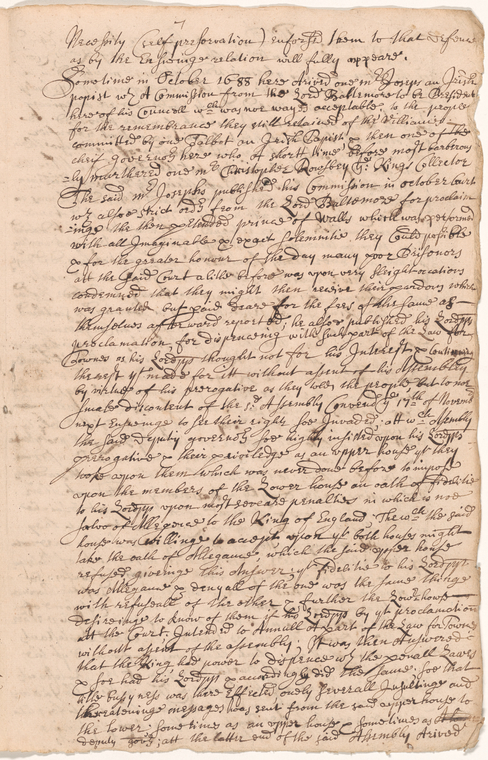 Necessity (self preservation) enforst them to that defence
as by the Ensueinge relation will fully appeare.
Sometime in October 1688 here arived one mr Joseps an Irish
papist wth A Commission from the Lord Baltemore to be President
here of his Councell wch was noe wayes acceptable to the people
for the remembrance they still retained of the Villianies
committed by one Talbot an Irish Papist & then one of the
cheif Governors here who A short time before most barberous
-ly murthered one mr Christopher Rowsbey the Kings Collector
The said mr Josephs published his Commission in october Court
wth alsoe strict ordr from the Lord Baltemore for proclaim
einge the then pretended prince of Walls which was performed
with all Imaginable & exact solemnitie they Could possible
& for the greater honour of the day many poor Prisonors
att the said Court alitle before was upon very sleight ocations
condemned that they might then receive their pardons which
was granted but paid deare for the fees of the same as
themselves afterward reported; he alsoe published his Lordsps
proclamation for dispenceing with such part of the Law for
Townes as his Lordsps thought not for his Interest &
the rest yt made for itt without assent of his Assembley
by virtue of his prerogative as they told the people but to noe
smale discontent of the sd Assembly Convened ye 12th of Novembr
next Ensueinge to see their rights soe Invaded att wch Assembly
the said deputy governors soe highly insisted upon his Lordsps
prerogative & their priviledge as an upper house yt they
took upon them (which was never done before) to impose
upon the members of the Lower house an oath of fidelitie
to his Lordsps upon most seveare penalties in which is noe
salvo of Allegence to the King of England The wch the said
house was willinge to accept upon yt both houses might
take the oath of Allegance, which the said upper house
refused giveinge this Answer yt fidelitie to his Lordsps
was Allegance & denyall of the one was the same thinge
with refuseall of the other & further the Lowr house
desireinge to know of them if his Lordsps by yt proclamation
att the Court Intended to Annull A part of the Law for Townes
without assent of the assembly, It was then Answered
that the King had power to dispence wth the penall Lawes
& soe had his Lordsps & accordingly did the same. soe that
little bussyness was there Effected onely severall Insultinge and
threateninge messages was sent from the said upper house to
the lower sometime as an upper house & sometimes as
deputy govrs; att the latter end of the said Assembly Arived